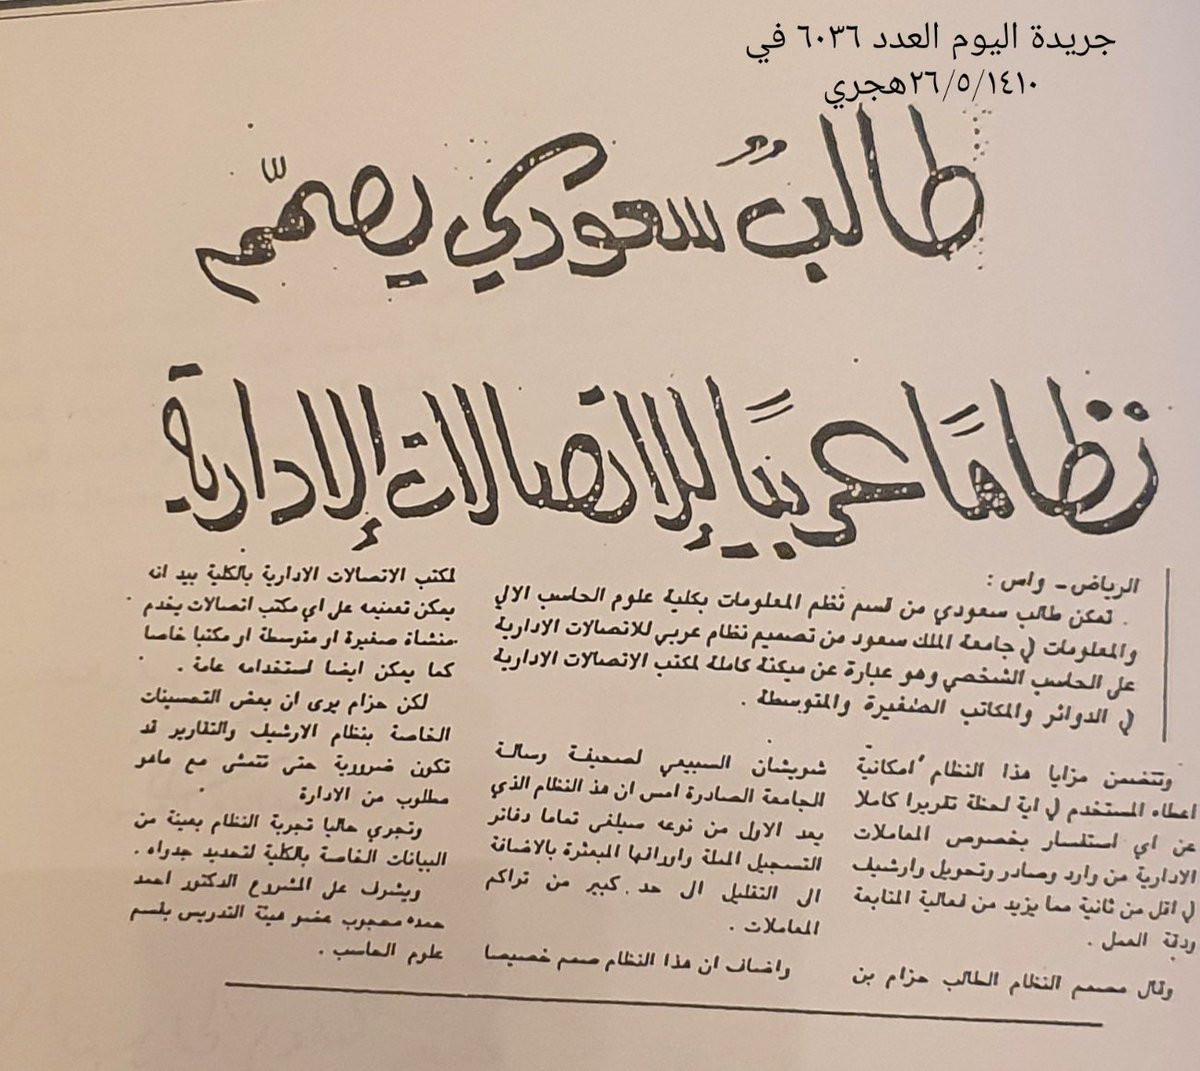 جريدة اليوم العدد ٦٠٣٦ في
٢٦/٥/١٤١٠هجري
طالبٌ سعودي يصمّم
نظامًا عربيًا للاتصالات الإدارية
الرياض - واس :
تمكن طالب سعودي من قسم نظم المعلومات بكلية علوم الحاسب الالي
والمعلومات في جامعة الملك سعود من تصميم نظام عربي للاتصالات الادارية
على الحاسب الشخصي وهو عبارة عن ميكنة كاملة لمكتب الاتصالات الادارية
في الدوائر والمكاتب الصغيرة والمتوسطة .
وتتضمن مزايا هذا النظام امكانية
اعطاء المستخدم في اية لحظة تقريرا كاملا
عن اي استفسار بخصوص المعاملات
الادارية من وارد وصادر وتحويل وارشيف
في اقل من ثانية مما يزيد من فعالية المتابعة
ودقة العمل .
وقال مصمم النظام الطالب حزام بن
شويشان السبيعي لصحيفة رسالة
الجامعة الصادرة امس ان هذ النظام الذي
يعد الاول من نوعه سيلغى تماما دفاتر
التسجيل المملة واوراقها المبعثرة بالاضافة
الى التقليل الى حد كبير من تراكم
المعاملات .
واضاف ان هذا النظام صمم خصيصا
لمكتب الاتصالات الادارية بالكلية بيد انه
يمكن تعميمه على اي مكتب اتصالات يخدم
منشاة صغيرة او متوسطة او مكتبا خاصا
كما يمكن ايضا استخدامه عامة .
لكن حزام يرى ان بعض التحسينات
الخاصة بنظام الارشيف والتقارير قد
تكون ضرورية حتى تتمشى مع ماهو
مطلوب من الادارة
وتجري حاليا تجربة النظام بعينة من
البيانات الخاصة بالكلية لتحديد جدواه .
ويشرف على المشروع الدكتور احمد
حمده محجوب عضو هيئة التدريس بقسم
علوم الحاسب .